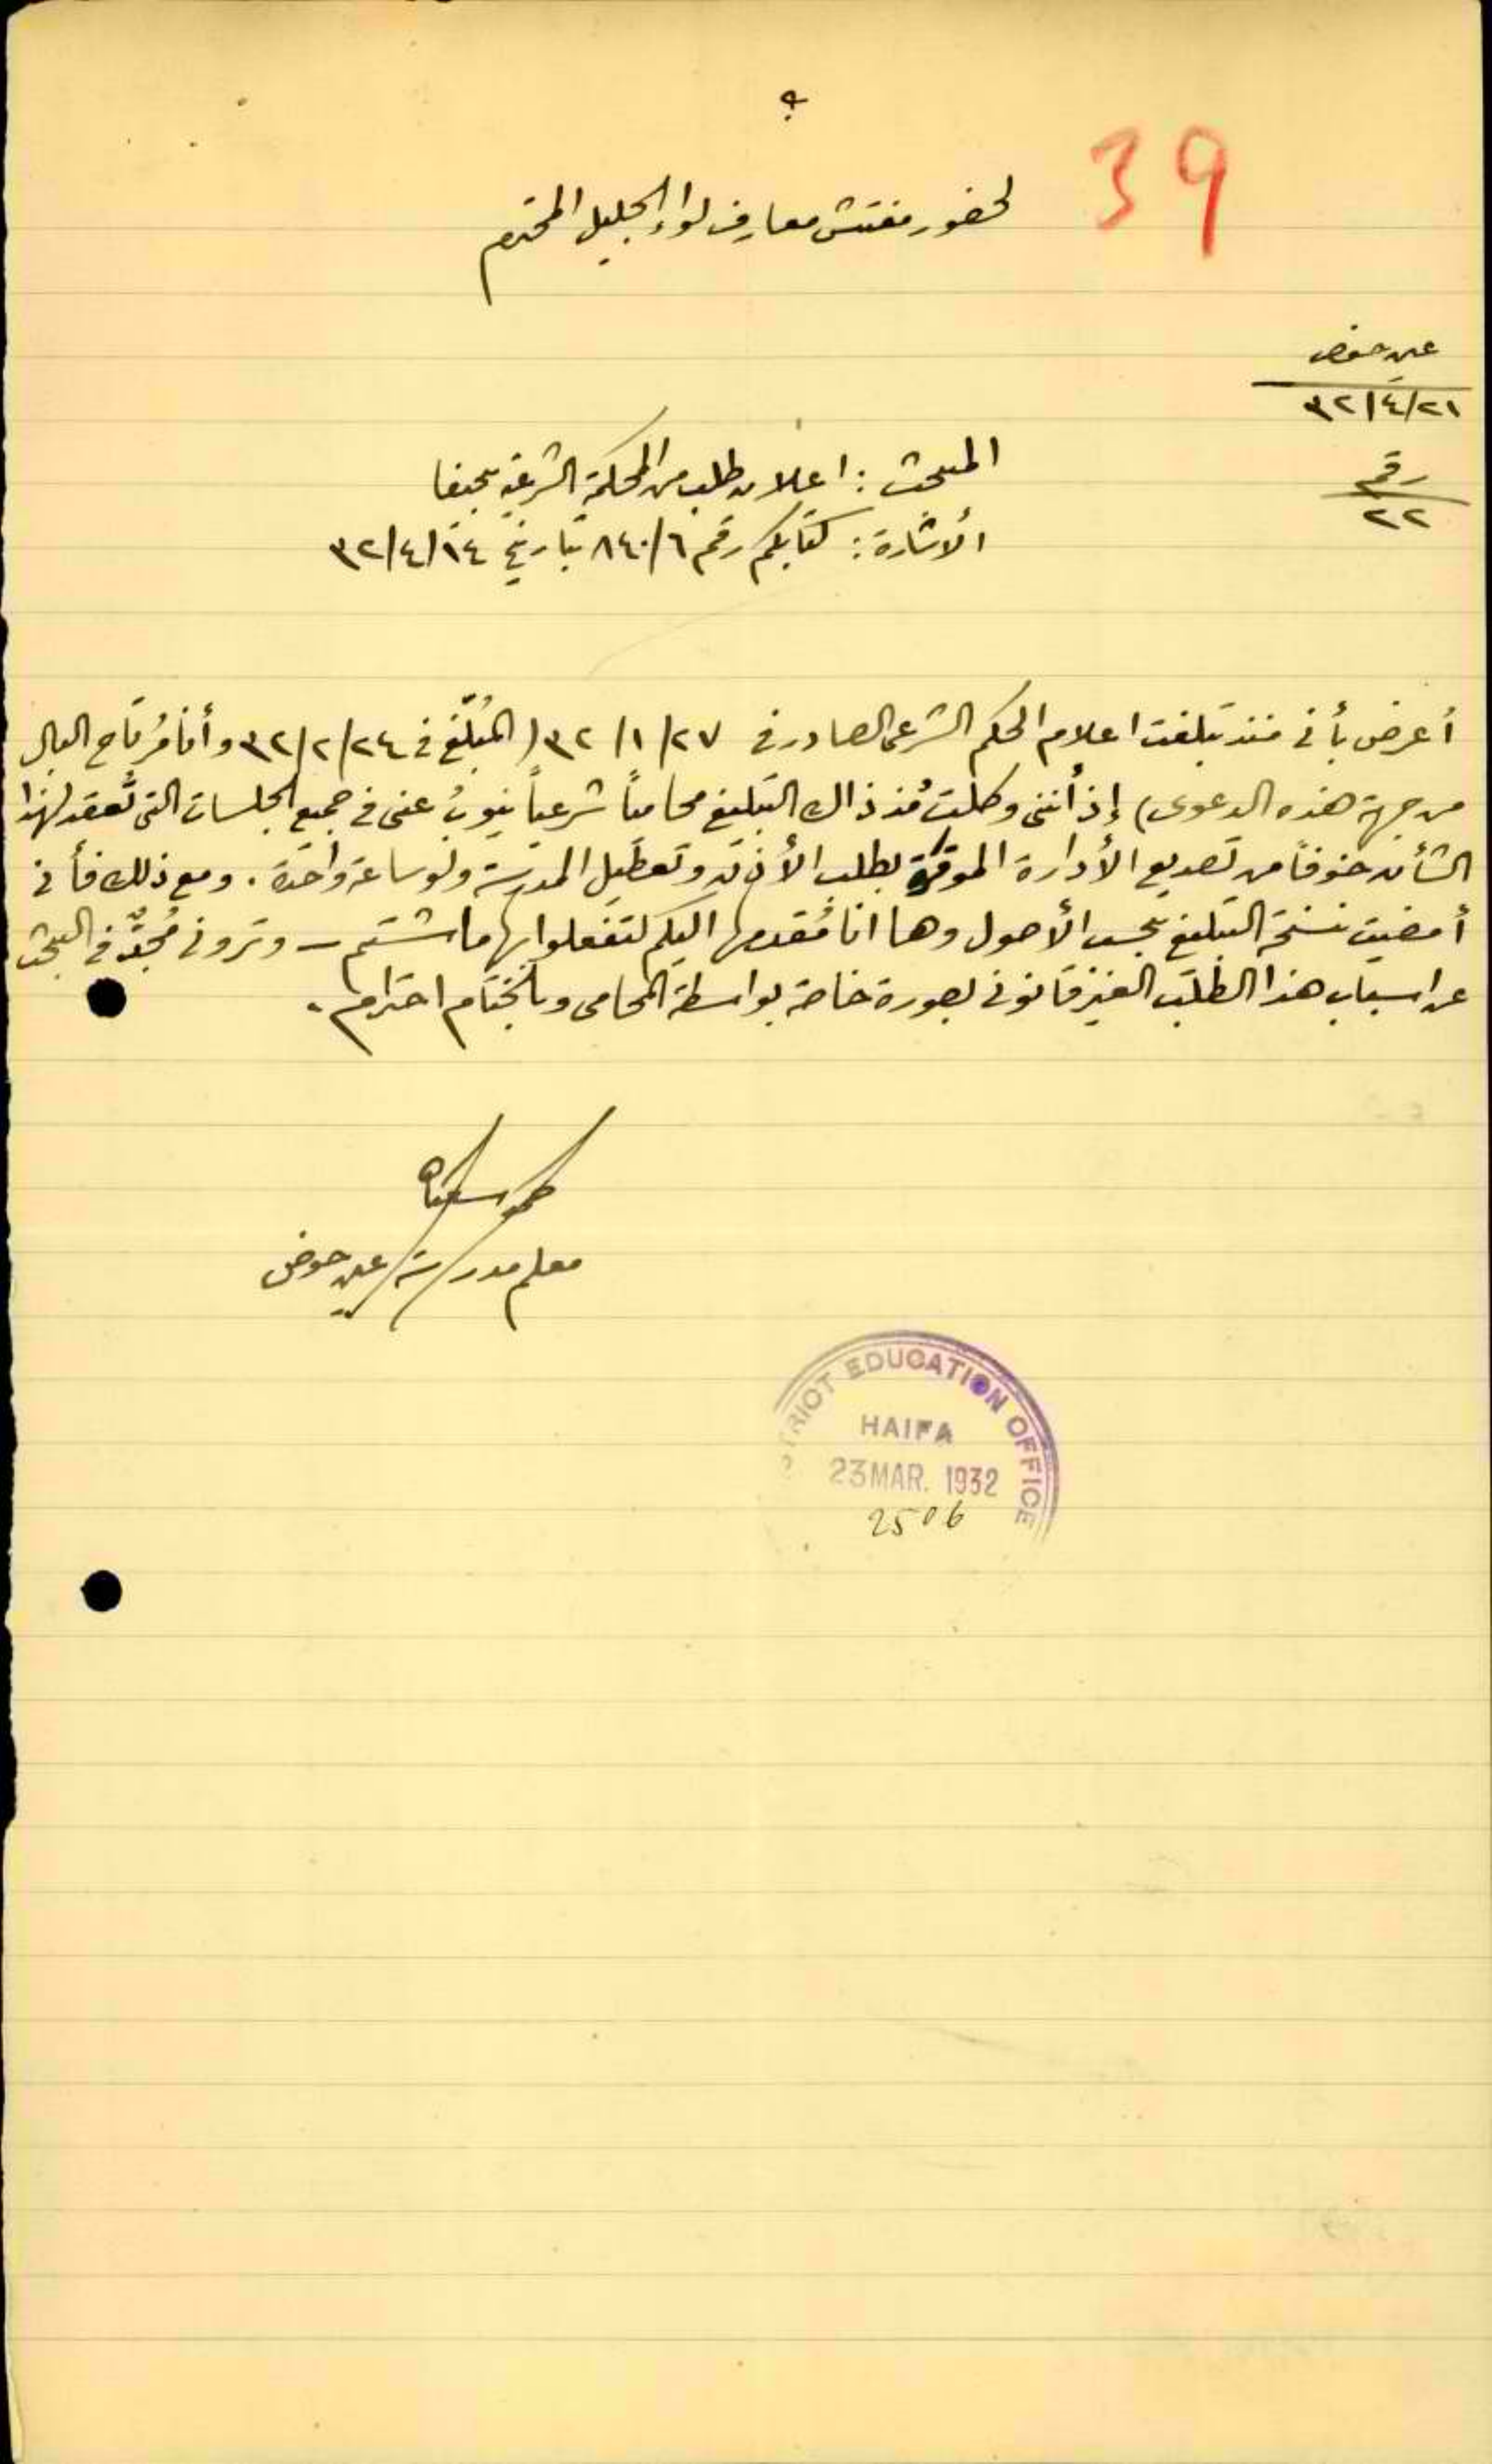 39
لحضور مفتش معارف لواء الجليل المحترم
عين حوض
٣٢/٤/٢١
رقم
٢٢
المبحث : اعلان طلب من المحكمة الشرعية بحيفا
الأشارة : كتابكم رقم ٨٤٠/٦ بتاريخ ٣٢/٤/١٤
أعرض بأني منذ تبلغت اعلام الحكم الشرعي الصادر في ٣٢/١/٢٧ (المُبلّغ في ٣٢/٢/٢٤ وأنا مُرتاح البال
من جهة هذه الدعوى) إذ أنني وكلت مُنذ ذاك التبليغ محامياً شرعياً ينوبُ عني في جميع الجلسات التي تُعقد لهذا
الشأن خوفاً من تصديع الأدارة الموقرة بطلب الأذن وتعطيل المدرسة ولو ساعة واحدة . ومع ذلك فأني
أمضيت نسخة التبليغ بحسب الأصول وها انا مُقدمها اليكم لتفعلوا بها ما شئتم – وتروني مُجدٌّ في البحث
عن اسباب هذا الطلب الغير قانوني بصورة خاصة بواسطة المحامي وبالختام احترام .
معلم مدرسة عين حوض
DISTRICT EDUCATION OFFICE
HAIFA
23 MAR. 1932
2506